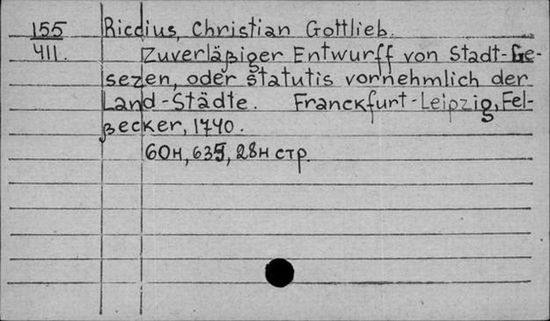 155 Riccius, Christian Gottlieb.
411. Zuverläßiger Entwurff von Stadt-Ge-
sezen, oder statutis vornehmlich der
Land-Städte. Franckfurt-Leipzig, Fel-
ßecker, 1740.
60н, 635, 28н стр.